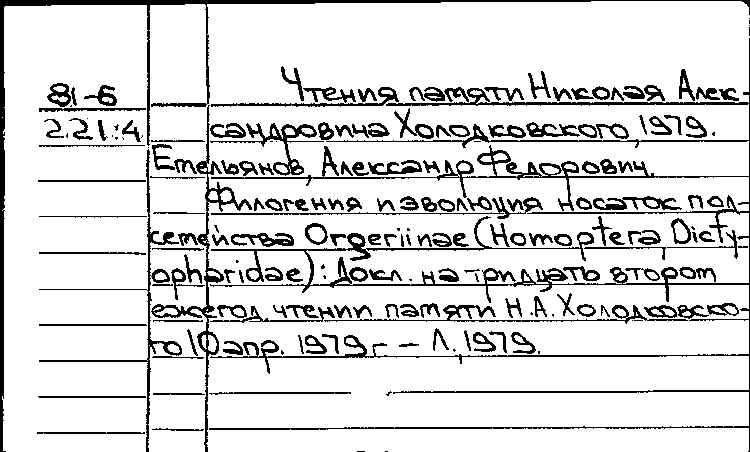 81-6
2.21:4
Чтения памяти Николая Алек-
сандровича Холодковского, 1979.
Емельянов, Александр Федорович.
Филогения и эволюция носаток под-
семейства Orgeriinae (Homoptera, Dicty-
opharidae): Докл. на тридцать втором
ежегод. чтении памяти Н.А. Холодковско-
го 10 апр. 1979 г. – Л., 1979.